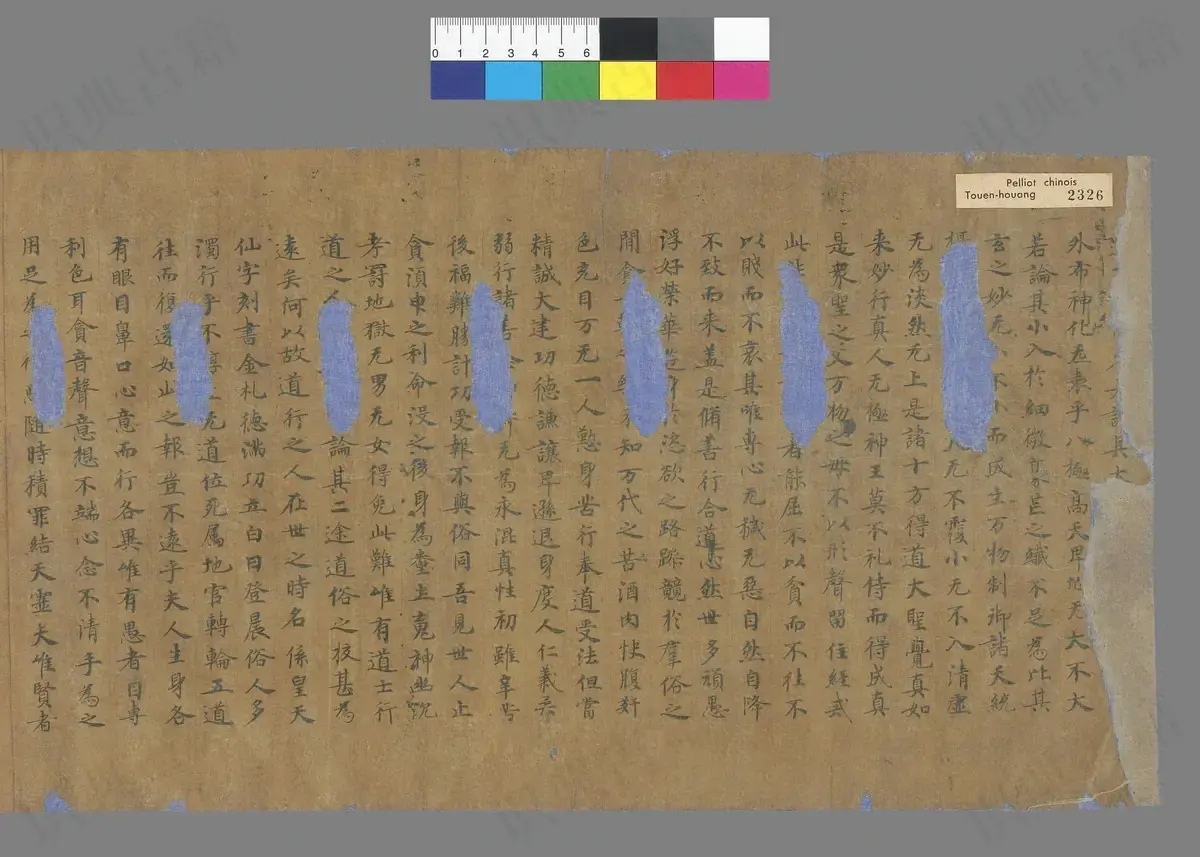 Pelliot chinois
Touen-houang 2326
0 1 2 3 4 5 6
外布神化无表乎八極高天卑地无大不大
若論其小入於細微豪芒之纖不足為比其
玄之妙无不小而成生万物制御諸天統
无不覆小无不入清虛
无為淡然无上是諸十方得道大聖覺真如
来妙行真人无極神王莫不礼侍而得成真
是衆聖之父万物之母不以形聲留住經或
此 者能屈不以貧而不往不
以賤而不哀其唯專心无穢无惡自然自降
不致而来盖是脩善行合道心然世多頑愚
浮好榮華 恣欲之路蹤競於羣俗之
間貪 知万代之苦酒肉快腹奸
色充目万无一人懃身苦行奉道受法但當
精誠大建功德謙讓卑遜退身度人仁義柔
弱行諸 无為永混真性初雖辛苦
後福難勝計功受報不與俗同吾見世人止
貪湏申之利命没之後身為臺土竟神幽
考罰地獄无男无女得免此難唯有道士行
道之人 論其二途道俗之校甚為
遠矣何以故道行之人在世之時名係皇天
仙字刻書金札德滿功立白日登晨俗人多
濁行乎不 无道位死属地官轉輪五道
往而復還如此之報豈不遠乎夫人生身各
有眼目鼻口心意而行各異唯有愚者目專
利色耳貪音聲意想不端心念不清手為之
用足為 隨時積罪結天靈夫唯賢者